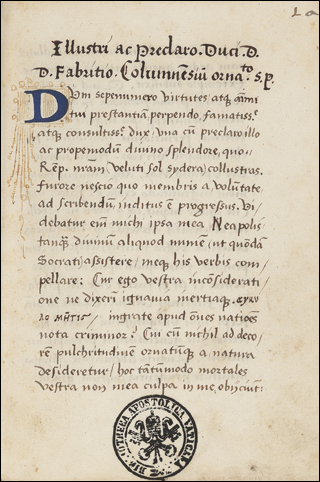 Illustri ac Preclaro. Duci. D.
D. Fabritio. Columnēsiū orna.to s.p.
Dum sepenumero virtutes atq; aīmi
tui prestantiam perpendo, famatiss.e
atq; consultiss.e dux. vna cū preclaro illo
ac propemodū divino splendore, quo
Rēp. nrām (veluti sol sydera) collustras.
furore nescio quo membris a volūtate,
ad scribendū, inditus ē progressus. Vi-
debatur eīm michi ipsa mea Neapolis
tanq̄ divinū aliquod numē (ut quōdā
Socrati) assistere, meq; his verbis com-
pellare: Cur ego vestra incōsiderati-
one ne dixerī ignavia mertiaq;
ingrate apud ōnes natiōes
nota criminor? Cui cū nichil ad deco-
rē pulchritudinē ornatūq; a natura
desideretur, hoc tātūmodo mortales
vestra non mea culpa in me, obijciūt:
BIBLIOTHECA APOSTOLICA VATICANA